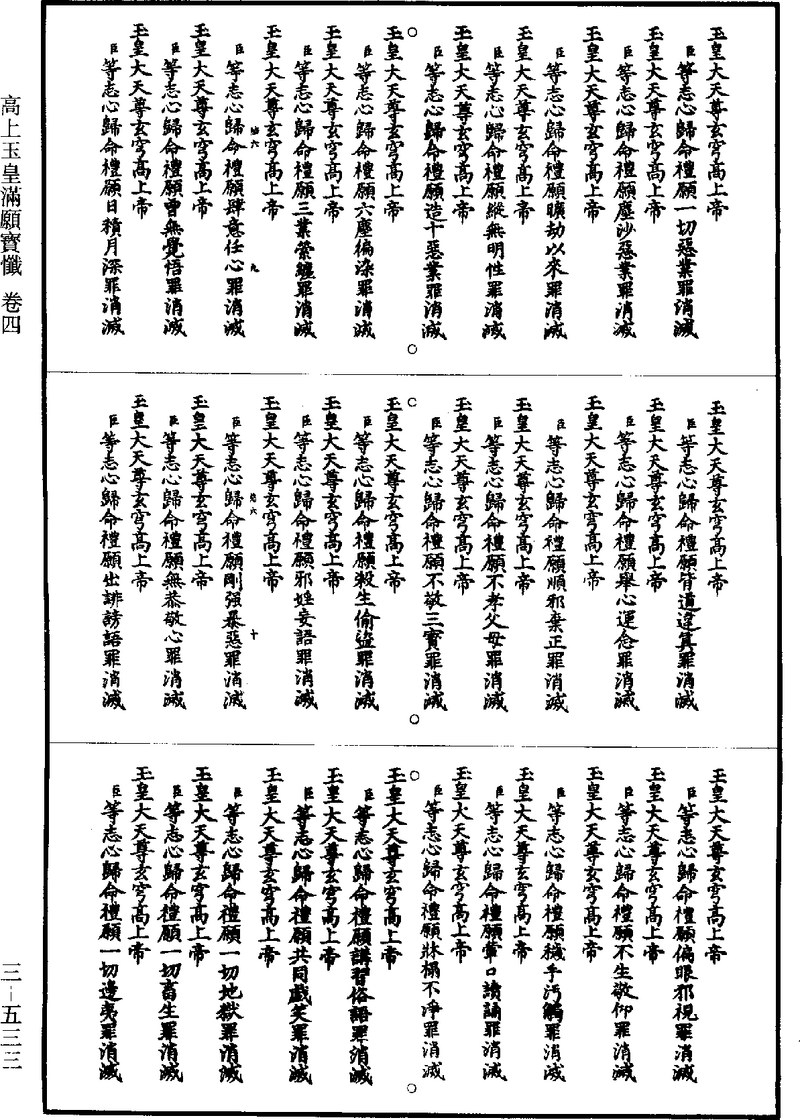 玉皇大天尊玄穹高上帝
臣等志心歸命禮願一切惡業罪消滅
玉皇大天尊玄穹高上帝
臣等志心歸命禮願塵沙惡業罪消滅
玉皇大天尊玄穹高上帝
臣等志心歸命禮願曠劫以來罪消滅
玉皇大天尊玄穹高上帝
臣等志心歸命禮願縱無明性罪消滅
玉皇大天尊玄穹高上帝
臣等志心歸命禮願造十惡業罪消滅
玉皇大天尊玄穹高上帝
臣等志心歸命禮願六塵徧染罪消滅
玉皇大天尊玄穹高上帝
臣等志心歸命禮願三業縈纏罪消滅
玉皇大天尊玄穹高上帝
始六 九
臣等志心歸命禮願肆意任心罪消滅
玉皇大天尊玄穹高上帝
臣等志心歸命禮願曾無覺悟罪消滅
玉皇大天尊玄穹高上帝
臣等志心歸命禮願日積月深罪消滅
玉皇大天尊玄穹高上帝
臣等志心歸命禮願背道違真罪消滅
玉皇大天尊玄穹高上帝
臣等志心歸命禮願舉心運念罪消滅
玉皇大天尊玄穹高上帝
臣等志心歸命禮願順邪棄正罪消滅
玉皇大天尊玄穹高上帝
臣等志心歸命禮願不孝父母罪消滅
玉皇大天尊玄穹高上帝
臣等志心歸命禮願不敬三寶罪消滅
玉皇大天尊玄穹高上帝
臣等志心歸命禮願殺生偷盜罪消滅
玉皇大天尊玄穹高上帝
臣等志心歸命禮願邪婬妄語罪消滅
玉皇大天尊玄穹高上帝
始六 十
臣等志心歸命禮願剛强暴惡罪消滅
玉皇大天尊玄穹高上帝
臣等志心歸命禮願無恭敬心罪消滅
玉皇大天尊玄穹高上帝
臣等志心歸命禮願出誹謗語罪消滅
玉皇大天尊玄穹高上帝
臣等志心歸命禮願偏眼邪視罪消滅
玉皇大天尊玄穹高上帝
臣等志心歸命禮願不生敬仰罪消滅
玉皇大天尊玄穹高上帝
臣等志心歸命禮願穢手汚觸罪消滅
玉皇大天尊玄穹高上帝
臣等志心歸命禮願葷口讀誦罪消滅
玉皇大天尊玄穹高上帝
臣等志心歸命禮願牀榻不淨罪消滅
玉皇大天尊玄穹高上帝
臣等志心歸命禮願講習俗語罪消滅
玉皇大天尊玄穹高上帝
臣等志心歸命禮願共同戲笑罪消滅
玉皇大天尊玄穹高上帝
臣等志心歸命禮願一切地獄罪消滅
玉皇大天尊玄穹高上帝
臣等志心歸命禮願一切畜生罪消滅
玉皇大天尊玄穹高上帝
臣等志心歸命禮願一切邊夷罪消滅
高上玉皇滿願寶懺 卷四
三－五三三